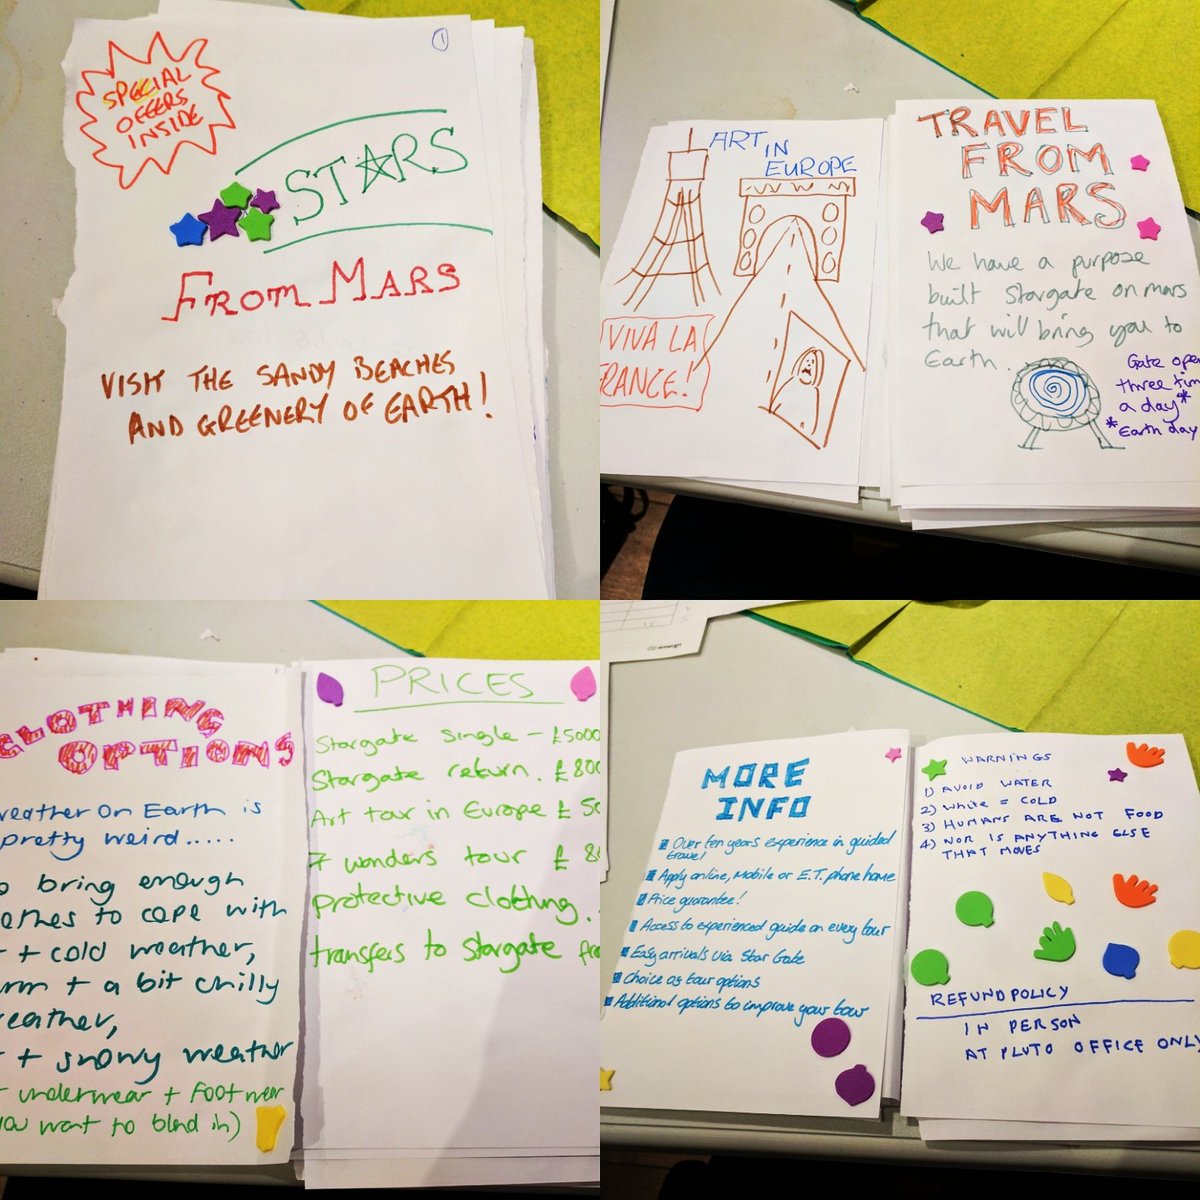 1
SPECIAL
OFFERS
INSIDE
STARS
FROM MARS
VISIT THE SANDY BEACHES
AND GREENERY OF EARTH!
ART IN
EUROPE
VIVA LA
FRANCE!
TRAVEL
FROM
MARS
We have a purpose
built Stargate on mars
that will bring you to
Earth.
Gate ope
three tim
a day*
*Earth day
CLOTHING
OPTIONS
weather on Earth is
pretty weird.....
bring enough
clothes to cope with
+ cold weather,
+ a bit chilly
weather,
+ snowy weather
underwear + footwear
you want to blend in)
PRICES
Stargate single - £5000
Stargate return. £800
Art tour in Europe £50
7 wonders tour £80
protective clothing.
transfers to Stargate fre
emerge
MORE
INFO
Over ten years experience in guided
travel!
Apply online, Mobile or E.T. phone home
Price guarantee!
Access to experienced guide on every tour
Easy arrivals via Star Gate
Choice of tour options
Additional options to improve your tour
WARNINGS
1) AVOID WATER
2) White = COLD
3) HUMANS ARE NOT FOOD
4) NOR IS ANYTHING ELSE
THAT MOVES
REFUND POLICY
IN PERSON
AT PLUTO OFFICE ONLY